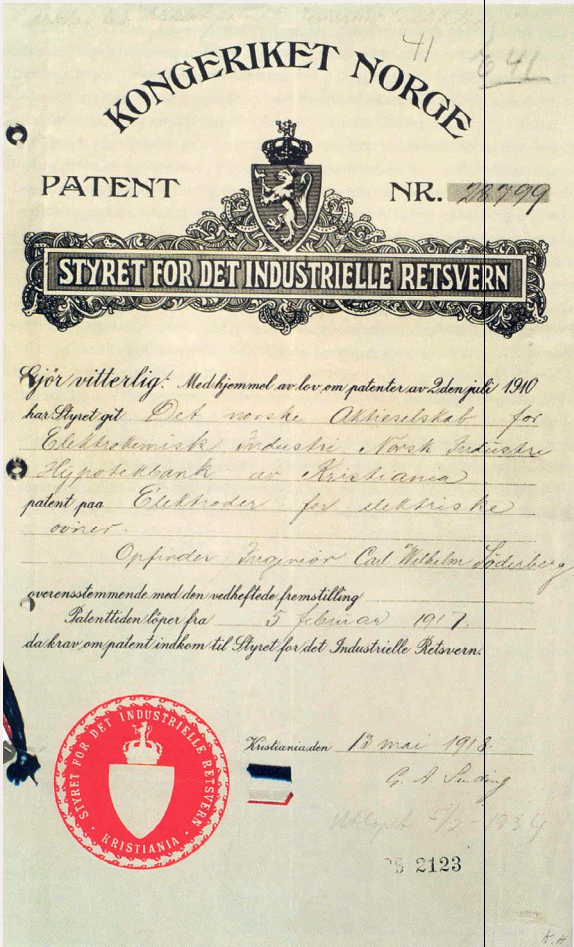 41
41
KONGERIKET NORGE
PATENT NR. 28799
STYRET FOR DET INDUSTRIELLE RETSVERN
Gjör vitterlig: Med hjemmel av lov om patenter av 2den juli 1910
har Styret git Det norske Aktieselskab for
Elektrokemisk Industri Norsk Industri
Hypotekbank av Kristiania
patent paa Elektroder for elektriske
ovner.
Opfinder Ingeniør Carl Wilhelm Söderberg
overensstemmende med den vedheftede fremstilling
Patenttiden löper fra 5 februar 1917.
da krav om patent indkom til Styret for det Industrielle Retsvern.
STYRET FOR DET INDUSTRIELLE RETSVERN
KRISTIANIA
Kristiania den 13 mai 1918.
G. A Sinding
Utløpet 5/2 1934
2123
K.H